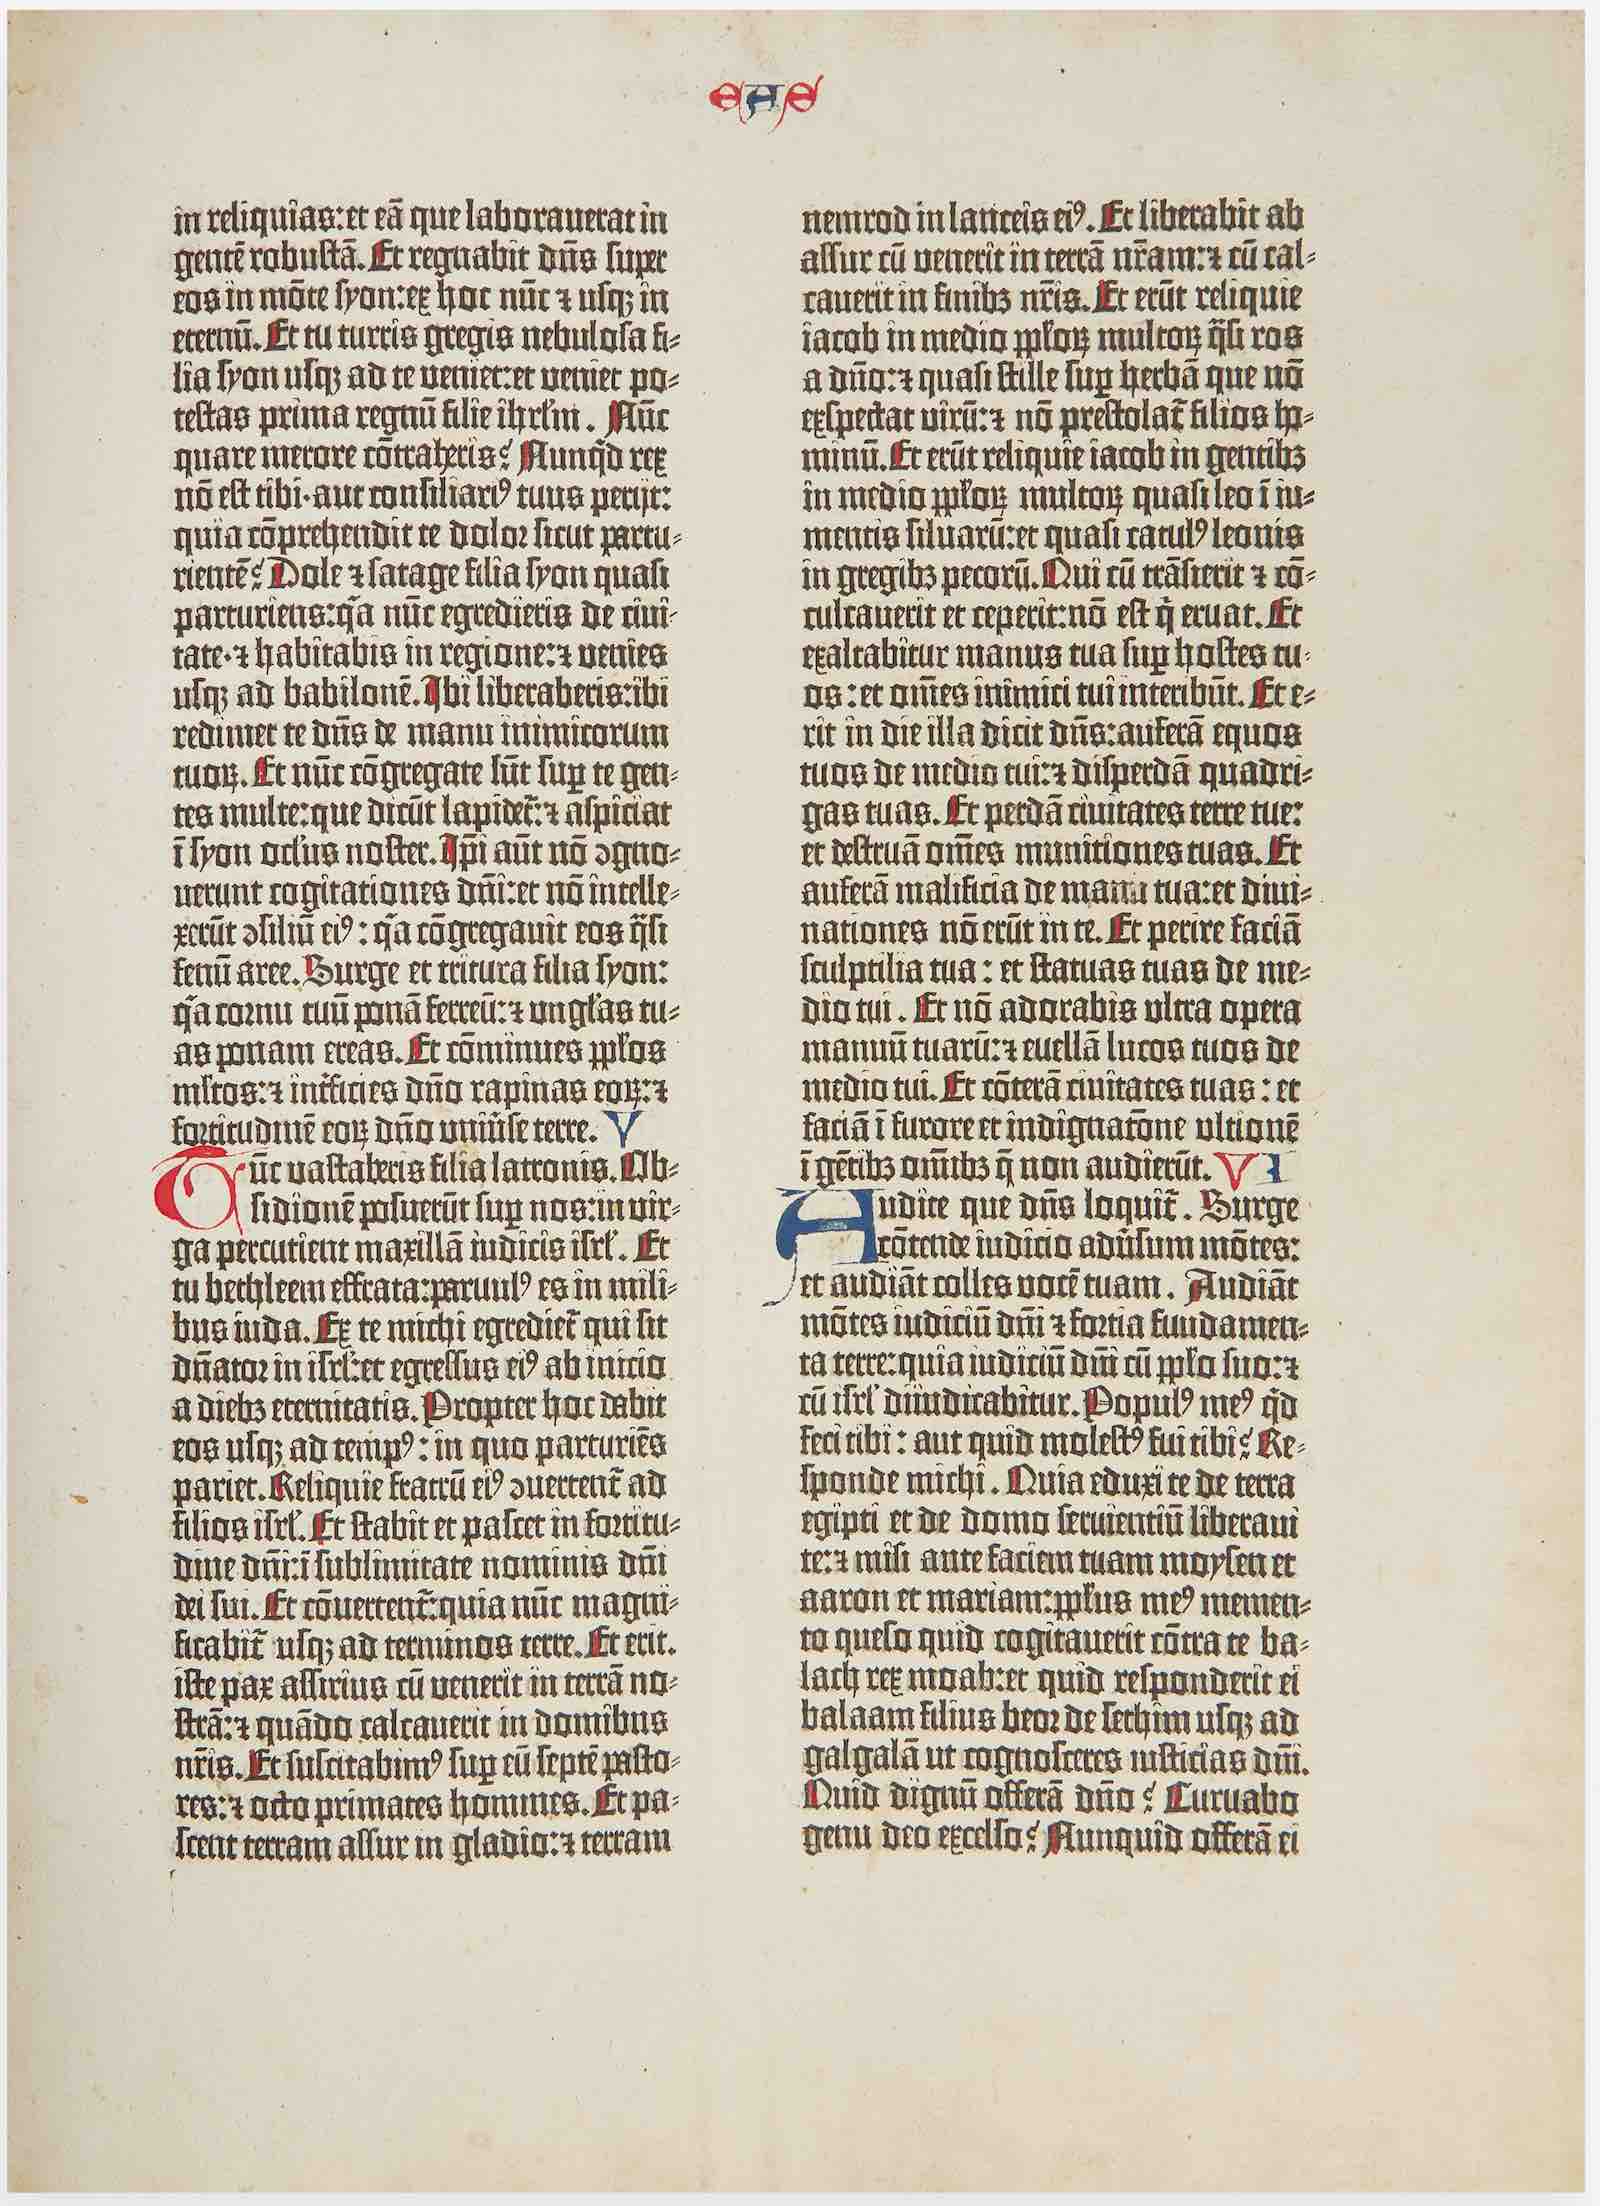 EAS
in reliquias: et eā que laborauerat in
gentē robustā. Et regnabit dn̄s super
eos in mōte syon: ex hoc nūc ⁊ usqꝫ in
eternū. Et tu turris gregis nebulosa fi-
lia syon usqꝫ ad te veniet: et veniet po-
testas prima regnū filie ihrl'm. Nūc
quare merore cōtraheris? Nunqͥd rex
nō est tibi· aut consiliariꝰ tuus perijt:
quia cōprehendit te dolor sicut partu-
rientē? Dole ⁊ satage filia syon quasi
parturiens: qͣa nūc egredieris de ciui-
tate· ⁊ habitabis in regione: ⁊ venies
usqꝫ ad babilonē. Ibi liberaberis: ibi
redimet te dn̄s de manu inimicorum
tuoꝝ. Et nūc cōgregate sūt suꝑ te gen-
tes multe: que dicūt lapidet̄: ⁊ aspiciat
ī syon ocl'us noster. Ip̄i aūt nō ꝯgno-
uerunt cogitationes dn̄i: et nō intelle-
xerūt ꝯsiliū eiꝰ: qͣa cōgregauit eos qͣsi
fenū aree. Surge et tritura filia syon:
qͣa cornu tuū ponā ferreū: ⁊ ungl'as tu-
as ponam ereas. Et cōminues ppl'os
ml'tos: ⁊ int̄ficies dn̄o rapinas eoꝝ: ⁊
fortitudinē eoꝝ dn̄o univ̄se terre. V
Nūc vastaberis filia latronis. Ob-
sidionē posuerūt suꝑ nos: in vir-
ga percutient maxillā iudicis isrl'. Et
tu bethleem effrata: paruulꝰ es in mili-
bus iuda. Ex te michi egrediet̄ qui sit
dn̄ator in isrl': et egressus eiꝰ ab inicio
a diebꝫ eternitatis. Propter hoc dabit
eos usqꝫ ad tempꝰ: in quo parturiēs
pariet. Reliquie fratrū eiꝰ ꝯuertent̄ ad
filios isrl'. Et stabit et pascet in fortitu-
dine dn̄i: ī sublimitate nominis dn̄i
dei sui. Et cōuertent̄: quia nūc magni-
ficabit̄ usqꝫ ad terminos terre. Et erit.
iste pax assirius cū venerit in terrā no-
strā: ⁊ quādo calcauerit in domibus
nr̄is. Et suscitabimꝰ suꝑ eū septē pasto-
res: ⁊ octo primates homines. Et pa-
scent terram assur in gladio: ⁊ terram
nemrod in lanceis eiꝰ. Et liberabit ab
assur cū venerit in terrā nr̄am: ⁊ cū cal-
cauerit in finibꝫ nr̄is. Et erūt reliquie
iacob in medio ppl'oꝝ multoꝝ qͣsi ros
a dn̄o: ⁊ quasi stille suꝑ herbā que nō
exspectat virū: ⁊ nō prestolat̄ filios ho-
minū. Et erūt reliquie iacob in gentibꝫ
in medio ppl'oꝝ multoꝝ quasi leo ī iu-
mentis siluarū: et quasi catulꝰ leonis
in gregibꝫ pecorū. Qui cū trāsierit ⁊ cō-
culcauerit et ceperit: nō est qͥ eruat. Et
exaltabitur manus tua suꝑ hostes tu-
os: et om̄es inimici tui interibūt. Et e-
rit in die illa dicit dn̄s: auferā equos
tuos de medio tui: ⁊ disperdā quadri-
gas tuas. Et perdā ciuitates terre tue:
et destruā om̄es munitiones tuas. Et
auferā malificia de manu tua: et diui-
nationes nō erūt in te. Et perire faciā
sculptilia tua: et statuas tuas de me-
dio tui. Et nō adorabis ultra opera
manuū tuarū: ⁊ euellā lucos tuos de
medio tui. Et cōterā ciuitates tuas: et
faciā ī furore et indignatōne ultionē
ī gētibꝫ om̄ibꝫ q̄ non audierūt. VI
Audite que dn̄s loquit̄. Surge
cōtende iudicio adūsum mōtes:
et audiāt colles vocē tuam. Audiāt
mōtes iudiciū dn̄i ⁊ fortia fundamen-
ta terre: quia iudiciū dn̄i cū ppl'o suo: ⁊
cū isrl' diiudicabitur. Populꝰ meꝰ qͥd
feci tibi: aut quid molestꝰ fui tibi? Re-
sponde michi. Quia eduxi te de terra
egipti et de domo seruientiū liberaui
te: ⁊ misi ante faciem tuam moysen et
aaron et mariam: ppl'us meꝰ memen-
to queso quid cogitauerit cōtra te ba-
lach rex moab: et quid responderit ei
balaam filius beor de sethim usqꝫ ad
galgalā ut cognosceres iusticias dn̄i.
Quid dignū offerā dn̄o? Curuabo
genu deo excelso? Nunquid offerā ei